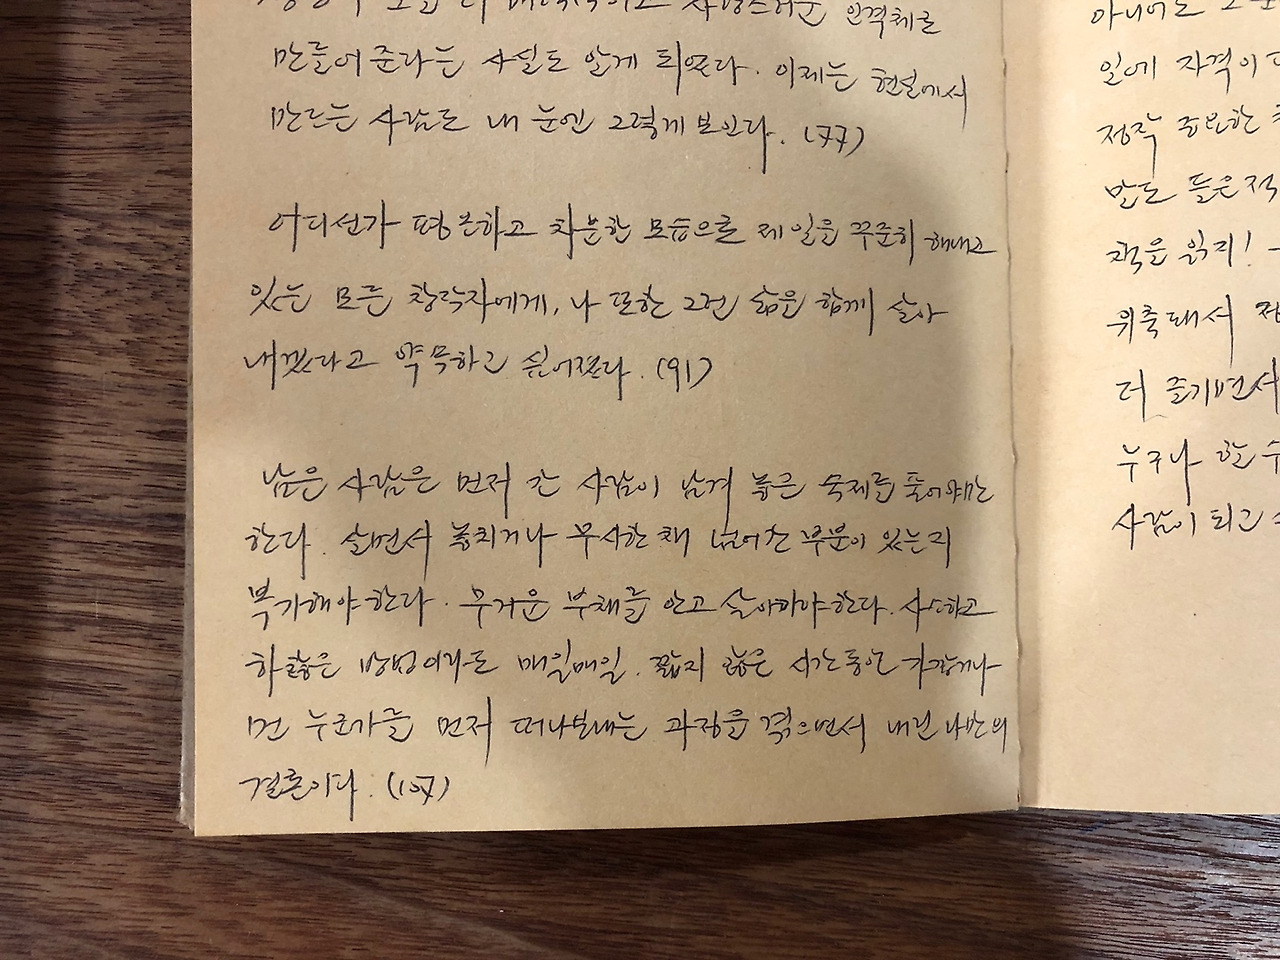 더 매력적이고 사랑스러운 인격체로
만들어 준다는 사실도 알게 되었다. 이제는 현실에서
만나는 사람도 내 눈엔 그렇게 보인다. (77)
어디선가 평온하고 차분한 모습으로 제 일을 꾸준히 해내고
있는 모든 창작자에게, 나 또한 그런 삶을 함께 살아
내겠다고 약속하고 싶어졌다. (91)
남은 사람은 먼저 간 사람이 남겨 놓은 숙제를 풀어야만
한다. 살면서 놓치거나 무시한 채 넘어간 부분이 있는지
복기해야 한다. 무거운 부채를 안고 살아가야 한다. 사소하고
하찮은 방법이라도 매일매일. 짧지 않은 시간 동안 가깝거나
먼 누군가를 먼저 떠나보내는 과정을 겪으면서 내린 나만의
결론이다. (107)
아니어도
일에 자격이
정작 중요한
말도 들은 적
책을 읽지!
위축돼서
더 즐기면서
누구나 한
사람이 되고